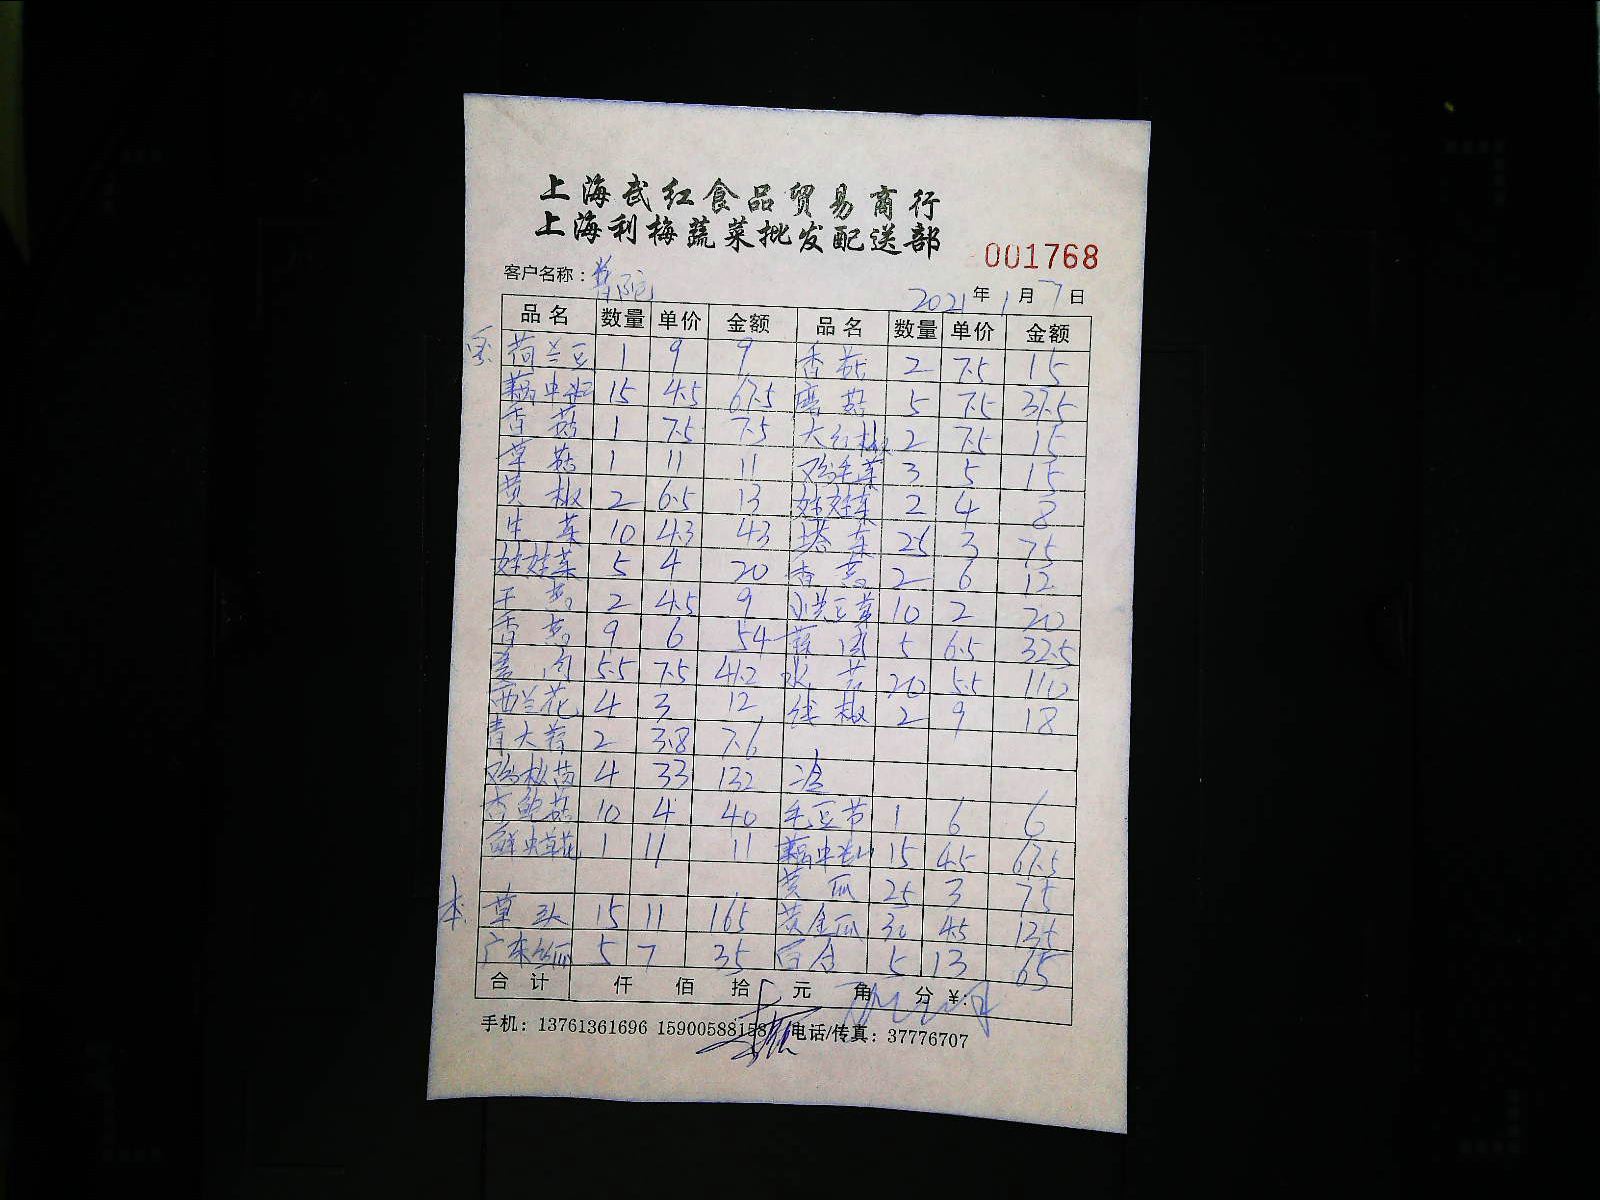 上海武红食品贸易商行
上海利梅蔬菜批发配送部
001768
客户名称：普陀
2021年1月7日
品名 数量 单价 金额 品名 数量 单价 金额
荷兰豆 1 9 9 香菇 2 7.5 15
藕中 15 4.5 67.5 磨菇 5 7.5 37.5
香菇 1 7.5 7.5 大红椒 2 7.5 15
草菇 1 11 11 鸡毛菜 3 5 15
黄椒 2 6.5 13 娃娃菜 2 4 8
生菜 10 4.3 43 塔菜 25 3 75
娃娃菜 5 4 20 香 2 6 12
2 4.5 9 小豆 10 2 20
香 9 6 54 5 6.5 32.5
肉 5.5 7.5 41.2 水 20 5.5 110
西兰花 4 3 12 线椒 2 9 18
青大 2 3.8 7.6
鸡枞 4 33 132 冷
杏鲍菇 10 4 40 毛豆节 1 6 6
鲜虫草花 1 11 11 藕中 15 4.5 67.5
黄瓜 25 3 75
本 草头 15 11 165 黄金瓜 30 4.5 135
广东丝瓜 5 7 35 百合 5 13 65
合计 仟 佰 拾 元 角 分 ¥:
手机：13761361696 15900588158 电话/传真：37776707